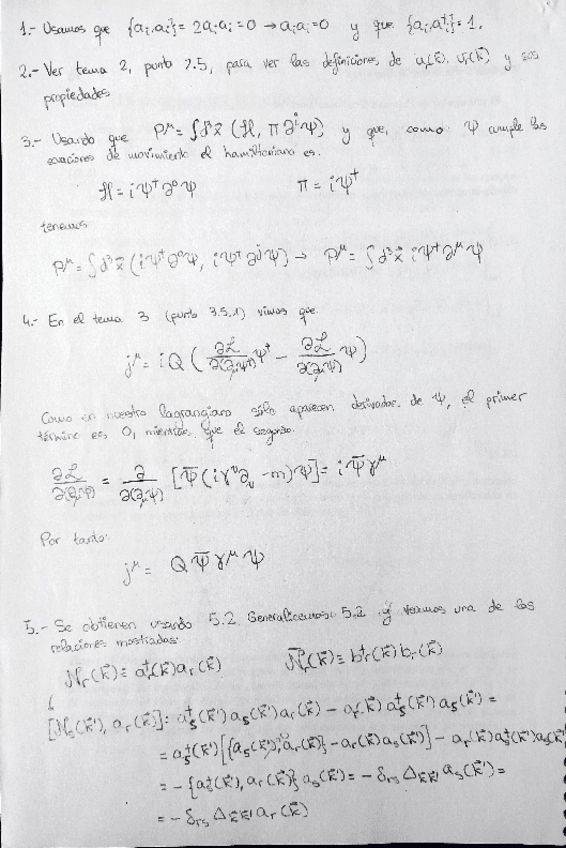 1.- Usamos que {aᵢ, aᵢ} = 2aᵢaᵢ = 0 → aᵢaᵢ = 0 y que {aᵢ, aᵢ†} = 1.
2.- Ver tema 2, punto 2.5, para ver las definiciones de uᵣ(k⃗), vᵣ(k⃗) y sus
propiedades
3.- Usando que Pᵘ = ∫d³x⃗ (ℋ, π ∂ʲψ) y que, como ψ cumple las
ecuaciones de movimiento el hamiltoniano es.
ℋ = iψ†∂⁰ψ π = iψ†
tenemos
Pᵘ = ∫d³x⃗ (iψ†∂⁰ψ, iψ†∂ʲψ) → Pᵘ = ∫d³x⃗ iψ†∂ᵘψ
4.- En el tema 3 (punto 3.5.1) vimos que
jᵘ = iQ (∂ℒ/∂(∂ᵤψ†) ψ† − ∂ℒ/∂(∂ᵤψ) ψ)
Como en nuestro lagrangiano sólo aparecen derivadas de ψ, el primer
término es 0, mientras que el segundo.
∂ℒ/∂(∂ᵤψ) = ∂/∂(∂ᵤψ) [ψ̄(iγᵛ∂ᵥ − m)ψ] = iψ̄γᵘ
Por tanto:
jᵘ = Qψ̄γᵘψ
5.- Se obtienen usando 5.2. Generalicemos 5.2 y veamos una de las
relaciones mostradas:
𝒩ᵣ(k⃗) = aᵣ†(k⃗)aᵣ(k⃗) 𝒩̄ᵣ(k⃗) = bᵣ†(k⃗)bᵣ(k⃗)
[𝒩ₛ(k⃗'), aᵣ(k⃗)] = aₛ†(k⃗')aₛ(k⃗')aᵣ(k⃗) − aᵣ(k⃗)aₛ†(k⃗')aₛ(k⃗') =
= aₛ†(k⃗')[{aₛ(k⃗'), aᵣ(k⃗)} − aᵣ(k⃗)aₛ(k⃗')] − aᵣ(k⃗)aₛ†(k⃗')aₛ(k⃗')
= −{aₛ†(k⃗'), aᵣ(k⃗)} aₛ(k⃗') = −δᵣₛ Δk⃗k⃗' aₛ(k⃗') =
= −δᵣₛ Δk⃗k⃗' aᵣ(k⃗)